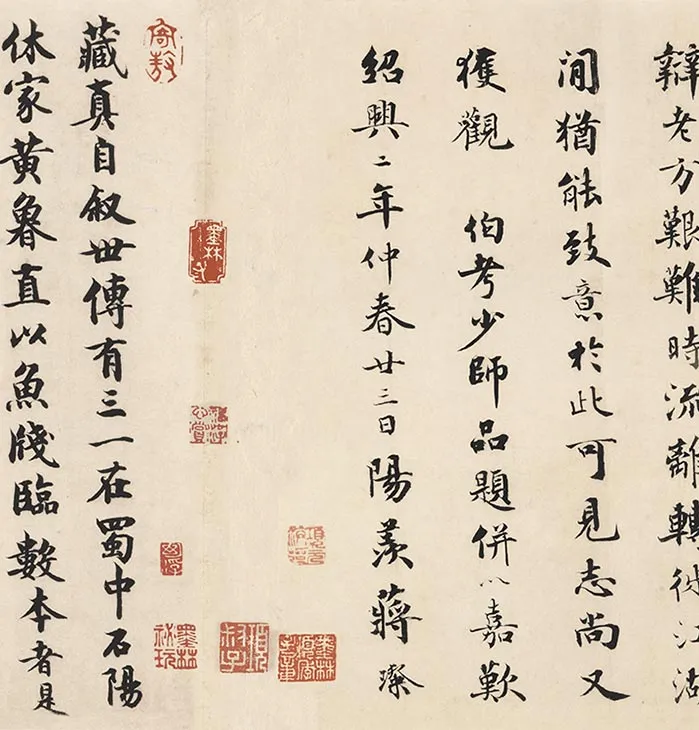 辯老方艱難時流離轉徙江湖
間猶能致意於此可見志尚又
獲觀 伯考少師品題併以嘉歎
紹興二年仲春廿三日陽羨蔣璨
藏真自叙世傳有三一在蜀中石陽
休家黃魯直以魚牋臨數本者是
寄敖
墨林
項叔子
墨林祕玩